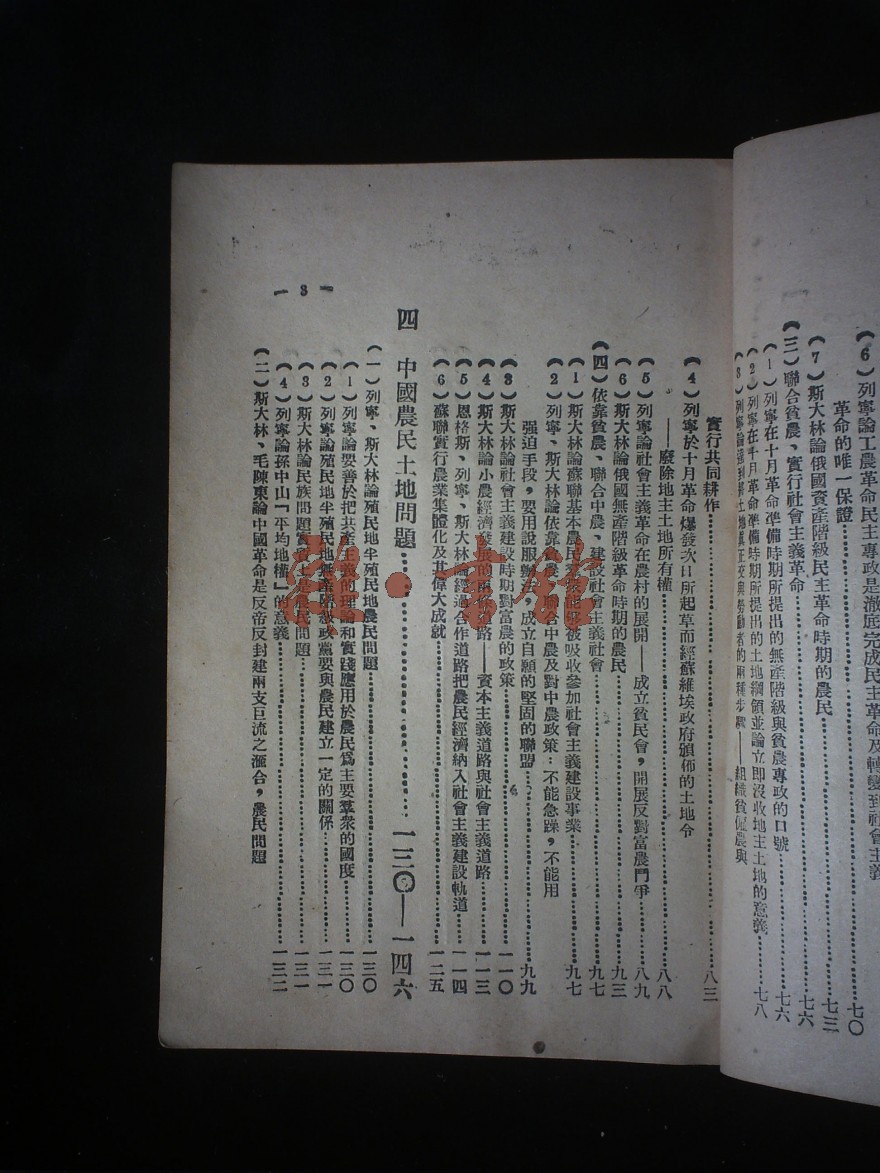 （6）列寧論工農革命民主專政是澈底完成民主革命及轉變到社會主義
革命的唯一保證……七〇
（7）斯大林論俄國資產階級民主革命時期的農民……七三
（三）聯合貧農、實行社會主義革命……七六
（1）列寧在十月革命準備時期所提出的無產階級與貧農專政的口號……七六
（2）列寧在十月革命準備時期所提出的土地綱領並論立即沒收地主土地的意義……七八
（3）列寧論達到將土地真正交與勞動者的兩種步驟——組織貧僱農與
實行共同耕作……八三
（4）列寧於十月革命爆發次日所起草而經蘇維埃政府頒佈的土地令
——廢除地主土地所有權……八八
（5）列寧論社會主義革命在農村的展開——成立貧民會，開展反對富農鬥爭……八九
（6）斯大林論俄國無產階級革命時期的農民……九三
（四）依靠貧農、聯合中農、建設社會主義社會……九七
（1）斯大林論蘇聯基本農民羣衆能够被吸收參加社會主義建設事業……九七
（2）列寧、斯大林論依靠貧農、聯合中農及對中農政策：不能急躁，不能用
强迫手段，要用說服辦法，成立自願的堅固的聯盟……九九
（3）斯大林論社會主義建設時期對富農的政策……一一〇
（4）斯大林論小農經濟發展的兩條道路——資本主義道路與社會主義道路……一一三
（5）恩格斯、列寧、斯大林論經過合作道路把農民經濟納入社會主義建設軌道……一一四
（6）蘇聯實行農業集體化及其偉大成就……一二五
四　中國農民土地問題……一三〇—一四六
（一）列寧、斯大林論殖民地半殖民地農民問題……一三〇
（1）列寧論要善於把共產主義的理論和實踐應用於農民爲主要羣衆的國度……一三〇
（2）列寧論殖民地半殖民地無產階級政黨要與農民建立一定的關係……一三一
（3）斯大林論民族問題實質上是農民問題……一三一
（4）列寧論孫中山「平均地權」的意義……一三二
（二）斯大林、毛陳東論中國革命是反帝反封建兩支巨流之滙合，農民問題
— 3 —